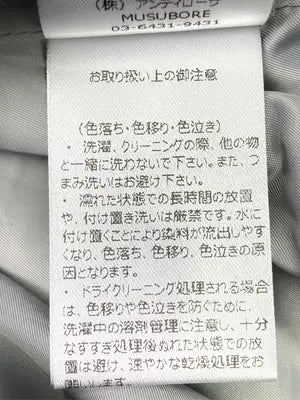 (株) アンティローザ
MUSUBORE
03-6431-9431
お取り扱い上の御注意
(色落ち・色移り・色泣き)
・ 洗濯、クリーニングの際、他の物
と一緒に洗わないで下さい。また、つ
まみ洗いはお避け下さい。
・ 濡れた状態での長時間の放置
や、付け置き洗いは厳禁です。水に
付け置くことにより染料が流出しやす
くなり、色落ち、色移り、色泣きの原
因となります。
・ ドライクリーニング処理される場合
は、色移りや色泣きを防ぐために、
洗濯中の溶剤管理に注意し、十分
なすすぎ処理後ぬれた状態での放
置は避け、速やかな乾燥処理をお
願いします。